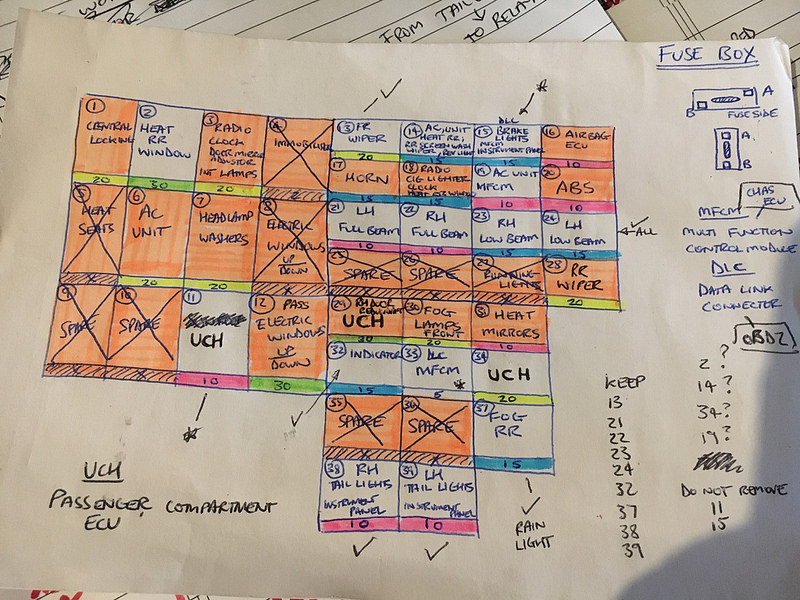 FROM TAIL
TO RELA
FUSE BOX
A
B
FUSE SIDE
A
B
1
CENTRAL
LOCKING
20
2
HEAT
RR
WINDOW
30
3
RADIO
CLOCK
DOOR MIRROR
INT LAMPS
20
4
IMMOBILISER
13 FR
WIPER
20
14 AC, UNIT
HEAT RR;
RR SCREEN WASH
15
DLC
15 BRAKE
LIGHTS
MFCM
INSTRUMENT PANEL
15
16 AIRBAG
ECU
10
17
HORN
15
18 RADIO
CIG LIGHTER
CLOCK
15
19 AC UNIT
MFCM
10
20
ABS
10
5
HEAT
SEATS
6
AC
UNIT
20
7
HEADLAMP
WASHERS
20
8
ELECTRIC
WINDOWS
UP
DOWN
21
LH
FULL BEAM
10
22
RH
FULL BEAM
10
23
RH
LOW BEAM
15
24
LH
LOW BEAM
15
ALL
25
SPARE
26
SPARE
27
RUNNING
LIGHTS
28 RR
WIPER
20
9
SPARE
10
SPARE
11
UCH
10
12 PASS
ELECTRIC
WINDOWS
UP
DOWN
30
29
UCH
20
30 FOG
LAMPS
FRONT
20
31
HEAT
MIRRORS
10
32 INDICATOR
15
33 DLC
MFCM
5
34
UCH
20
35
SPARE
36
SPARE
37
FOG
RR
15
38 RH
TAIL LIGHTS
INSTRUMENT
PANEL
10
39 LH
TAIL LIGHTS
INSTRUMENT
PANEL
10
RAIN
LIGHT
UCH
PASSENGER COMPARTMENT
ECU
CHAS
ECU
MFCM
MULTI FUNCTION
CONTROL MODULE
DLC
DATA LINK
CONNECTOR
OBD2
KEEP
13
21
22
23
24
32
37
38
39
2?
14?
34?
19?
DO NOT REMOVE
11
15